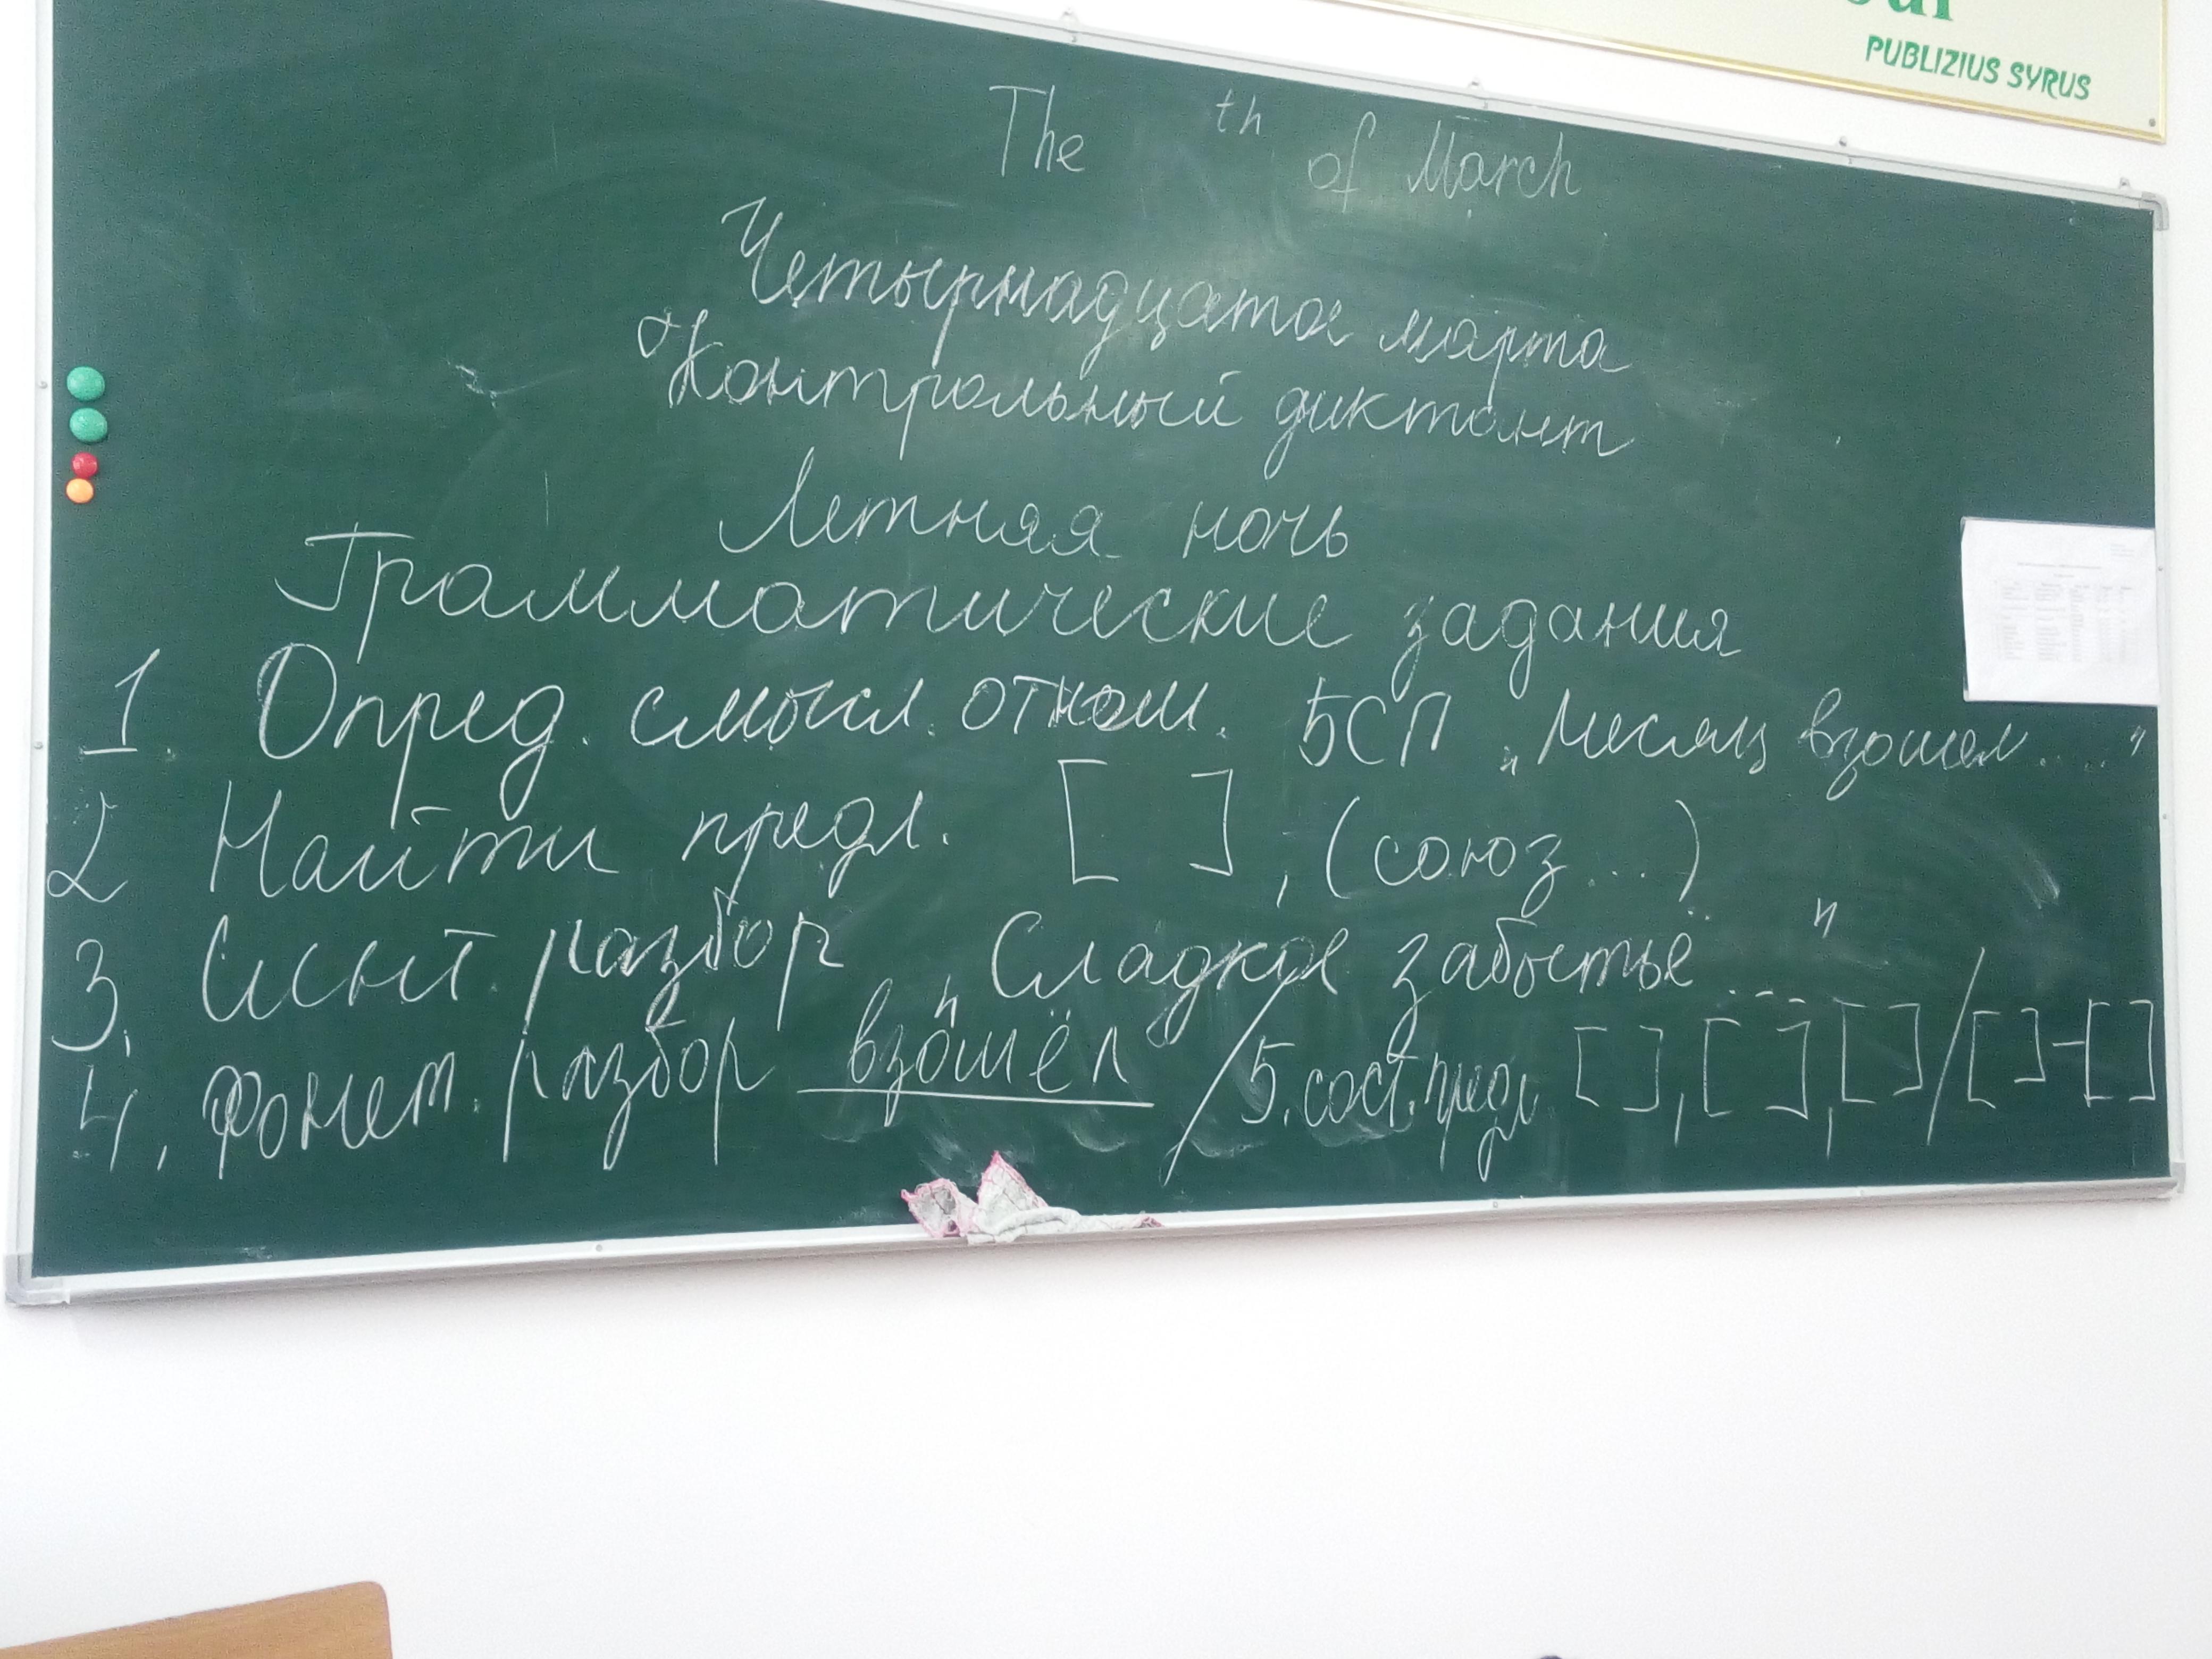 PUBLIZIUS SYRUS
The th of March
Четырнадцатое марта
Контрольный диктант
Летняя ночь
Грамматические задания
1. Опред. смысл. отнош. БСП „Месяц взошел...."
2 Найти предл. [ ], (союз...)
3. Синт. разбор „Сладкое забытье ..."
4. Фонет. разбор взошёл / 5. сост. предл [ ], [ ], [ ] / [ ] - [ ]